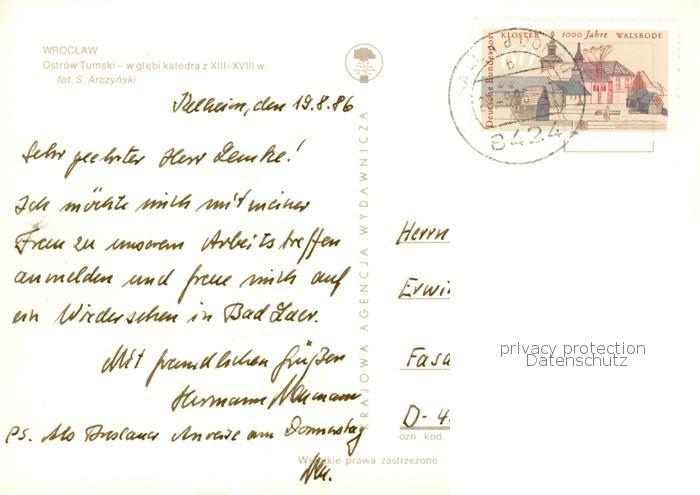 WROCŁAW
Ostrów Tumski – w głębi katedra z XIII–XVIII w.
fot. S. Arczyński
den 19.8.86
Sehr geehrter Herr Lemke!
Ich möchte mich mit meiner
Frau zu unserem Arbeitstreffen
anmelden und freue mich auf
ein Wiedersehen in Bad Laer.
Mit freundlichen Grüßen
Hermann
PS. Als Breslauer Anreise am Donnerstag
KRAJOWA AGENCJA WYDAWNICZA
Deutsche Bundespost
KLOSTER 1000 Jahre WALSRODE
b
8424
Herrn
Erwi
Fasa
D-4
ozn. kod.
Wszelkie prawa zastrzeżone
privacy protection
Datenschutz